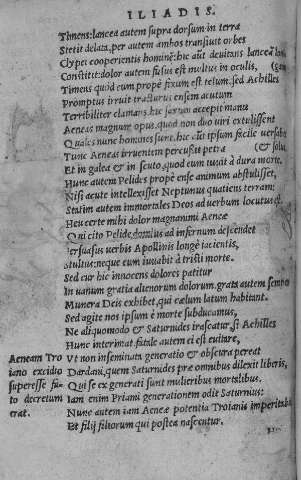 ILIADIS.
Timens: lancea autem supra dorsum in terra
Stetit delata, per autem ambos transiuit orbes
Clypei cooperientis hominē: hic aūt deuitans lanceā longā
Constitit: dolor autem fusus est multus in oculis,
Timens quod eum propè fixum est telum. sed Achilles
Promptus irruit tracturus ensem acutum
Terribiliter clamans. hic saxum accepit manu
Aeneas magnum opus, quod non duo viri extulissent
Quales nunc homines sunt. hic aūt ipsum facile versabat
Tunc Aeneas irruentem percussit petra (& solus
Et in galea & in scuto, quod eum iuuit à dura morte.
Hunc autem Pelides propè ense animam abstulisset,
Nisi acutè intellexisset Neptunus quatiens terram:
Statim autem immortales Deos ad uerbum locutus est.
Heu certe mihi dolor magnanimi Aeneae
Qui cito Pelide domitus ad infernum descendet
Persuasus verbis Apollinis longè iacientis,
Stultus: neque eum iuuabit à tristi morte.
Sed cur hic innocens dolores patitur
In uanum gratia alienorum dolorum. grata autem semper
Munera Deis exhibet, qui cælum latum habitant.
Sed agite nos ipsum è morte subducamus,
Ne aliquomodo & Saturnides irascatur, si Achilles
Hunc interimat. fatale autem ei est euitare,
Aeneam Tro
iano excidio
superesse fa-
to decretum
erat.
Vt non inseminata generatio & obscura pereat
Dardani, quem Saturnides præ omnibus dilexit liberis,
Qui se ex generati sunt mulieribus mortalibus.
Iam enim Priami generationem odit Saturnius:
Nunc autem iam Aeneæ potentia Troianis imperitabit
Et filij filiorum qui postea nascentur.